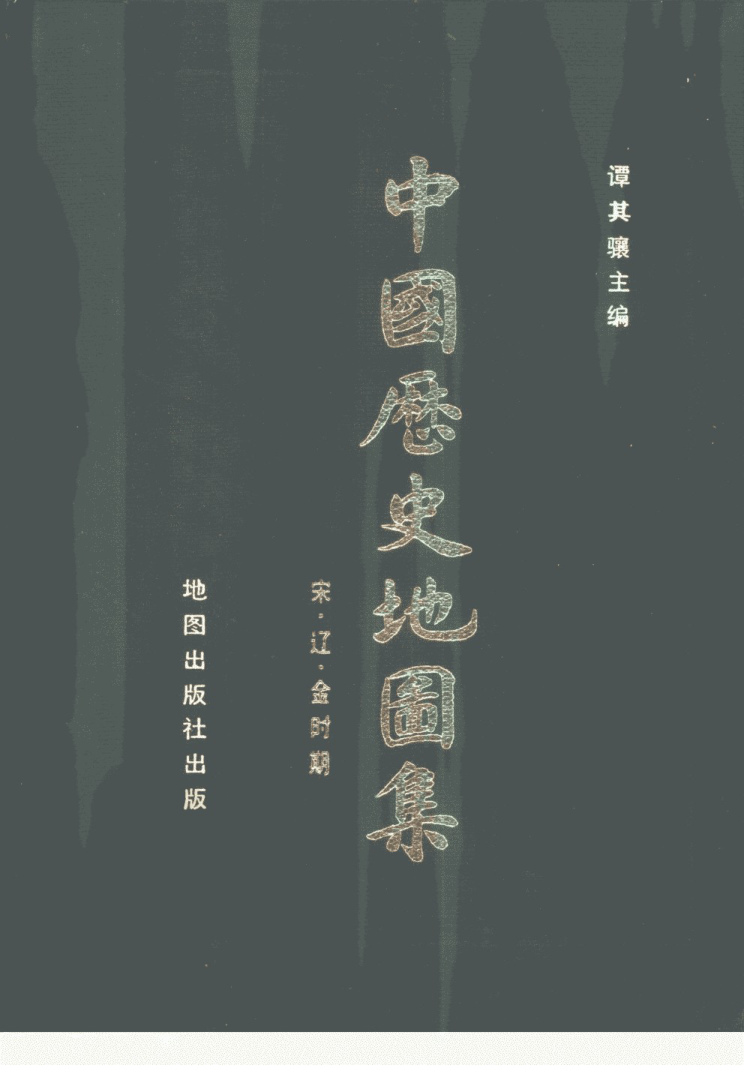 谭其骧主编
中國歷史地圖集
宋·辽·金时期
地图出版社出版